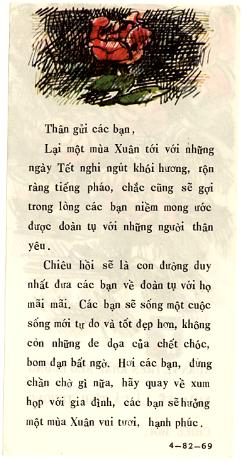 Thân gửi các bạn,
Lại một mùa Xuân tới với những
ngày Tết nghi ngút khói hương, rộn
ràng tiếng pháo, chắc cũng sẽ gợi
trong lòng các bạn niềm mong ước
được đoàn tụ với những người thân
yêu.
Chiêu hồi sẽ là con đường duy
nhất đưa các bạn về đoàn tụ với họ
mãi mãi. Các bạn sẽ sống một cuộc
sống mới tự do và tốt đẹp hơn, không
còn những đe dọa của chết chóc,
bom đạn bất ngờ. Hơi các bạn, đừng
chần chờ gì nữa, hãy quay về xum
họp với gia đình, các bạn sẽ hưởng
một mùa Xuân vui tươi, hạnh phúc.
4-82-69